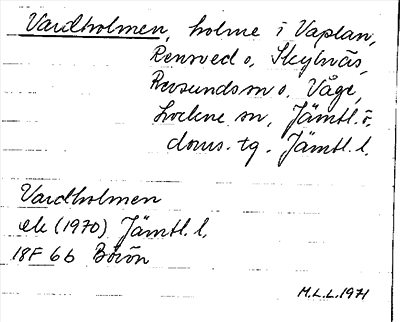 Vardholmen, holme i Vaplan,
Rensved o. Skylnäs,
Revsunds sn o. Våge,
Lockne sn, Jämtl. ö.
doms. tg. Jämtl. l.
Vardholmen
ek (1970) Jämtl. l.
18F 6b Börön
M.L.L. 1971